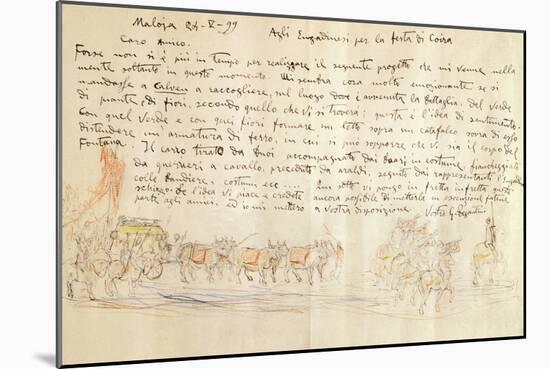 Maloja 24-V-99 Agli Engadinesi per la festa di Coira
Caro Amico.
Forse non si è più in tempo per realizzare il seguente progetto che mi venne nella
mente soltanto in questo momento. Mi sembra cosa molto emozionante se si
mandasse a Calven a raccogliere, sul luogo dove è avvenuta la battaglia, del verde
di piante o di fiori, secondo quello che vi si troverà; questa è l'idea di sentimento.
Con quel verde e con quei fiori formare un letto sopra un catafalco sovra di esso
distendere un'armatura di ferro, in cui si può supporre che vi sia il corpo del
Fontana. Il carro tirato da buoi accompagnati dai boari in costume, fiancheggiato
da guerrieri a cavallo, preceduto da araldi, seguito dai rappresentanti l'
colle bandiere, costumi ecc .... Qui sotto vi pongo in fretta in fretta questo
schizzo. Se l'idea vi piace e credete ancora possibile di metterla in esecuzione fatene
parte agli amici, ed io mi metterò a vostra disposizione. Vostro G. Segantini